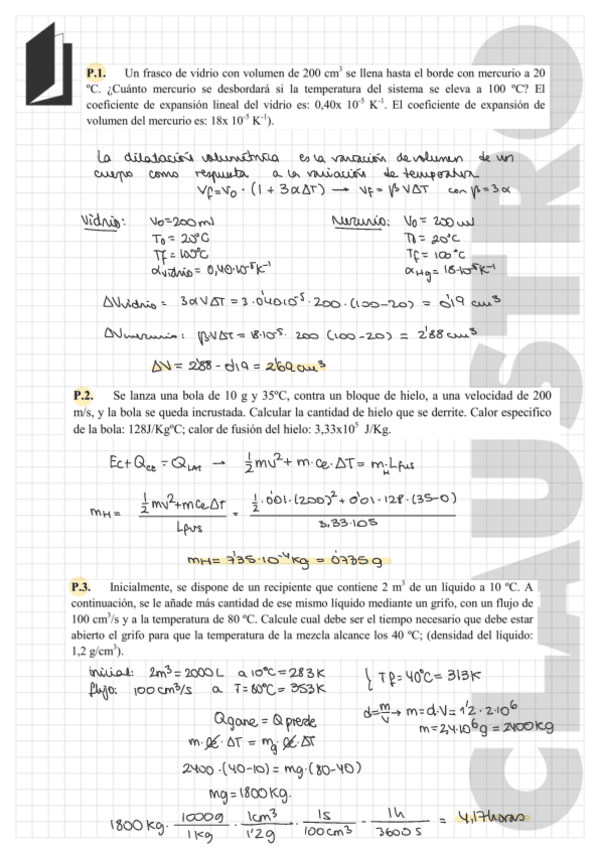 P.1. Un frasco de vidrio con volumen de 200 cm³ se llena hasta el borde con mercurio a 20
ºC. ¿Cuánto mercurio se desbordará si la temperatura del sistema se eleva a 100 ºC? El
coeficiente de expansión lineal del vidrio es: 0,40x 10⁻⁵ K⁻¹. El coeficiente de expansión de
volumen del mercurio es: 18x 10⁻⁵ K⁻¹).
La dilatación volumétrica es la variación de volumen de un
cuerpo como respuesta a la variación de temperatura
Vf = V₀ · (1 + 3αΔT) → Vf = βVΔT con β = 3α
Vidrio: V₀ = 200 ml
T₀ = 20°C
Tf = 100°C
αvidrio = 0,40·10⁻⁵K⁻¹
Mercurio: V₀ = 200 ml
T₀ = 20°C
Tf = 100°C
αHg = 18·10⁻⁵K⁻¹
ΔVvidrio = 3αVΔT = 3·0'40·10⁻⁵·200·(100-20) = 0'19 cm³
ΔVmercurio: βVΔT = 18·10⁻⁵· 200 (100-20) = 2'88 cm³
ΔV = 2'88 - 0'19 = 2'69 cm³
P.2. Se lanza una bola de 10 g y 35ºC, contra un bloque de hielo, a una velocidad de 200
m/s, y la bola se queda incrustada. Calcular la cantidad de hielo que se derrite. Calor especifico
de la bola: 128J/KgºC; calor de fusión del hielo: 3,33x10⁵ J/Kg.
Ec + Qce = QLAT → ½mv² + m·ce·ΔT = mH·Lfus
mH = (½mv² + mceΔT) / Lfus = (½·0'01·(200)² + 0'01·128·(35-0)) / 3,33·105
mH = 7'35·10⁻⁴ kg = 0'735 g
P.3. Inicialmente, se dispone de un recipiente que contiene 2 m³ de un líquido a 10 ºC. A
continuación, se le añade más cantidad de ese mismo líquido mediante un grifo, con un flujo de
100 cm³/s y a la temperatura de 80 ºC. Calcule cual debe ser el tiempo necesario que debe estar
abierto el grifo para que la temperatura de la mezcla alcance los 40 ºC; (densidad del líquido:
1,2 g/cm³).
inicial: 2m³ = 2000L a 10°C = 283K
flujo: 100cm³/s a T = 80°C = 353K
{ Tf = 40°C = 313K
d = m/V → m = d·V = 1'2·2·10⁶
m = 2,4·10⁶g = 2400kg
Qgane = Qpierde
m·ce·ΔT = mg·ce·ΔT
2400·(40-10) = mg·(80-40)
mg = 1800Kg.
1800Kg · 1000g/1Kg · 1cm³/1'2g · 1s/100cm³ · 1h/3600s = 4,17 horas
CLAUSTRO